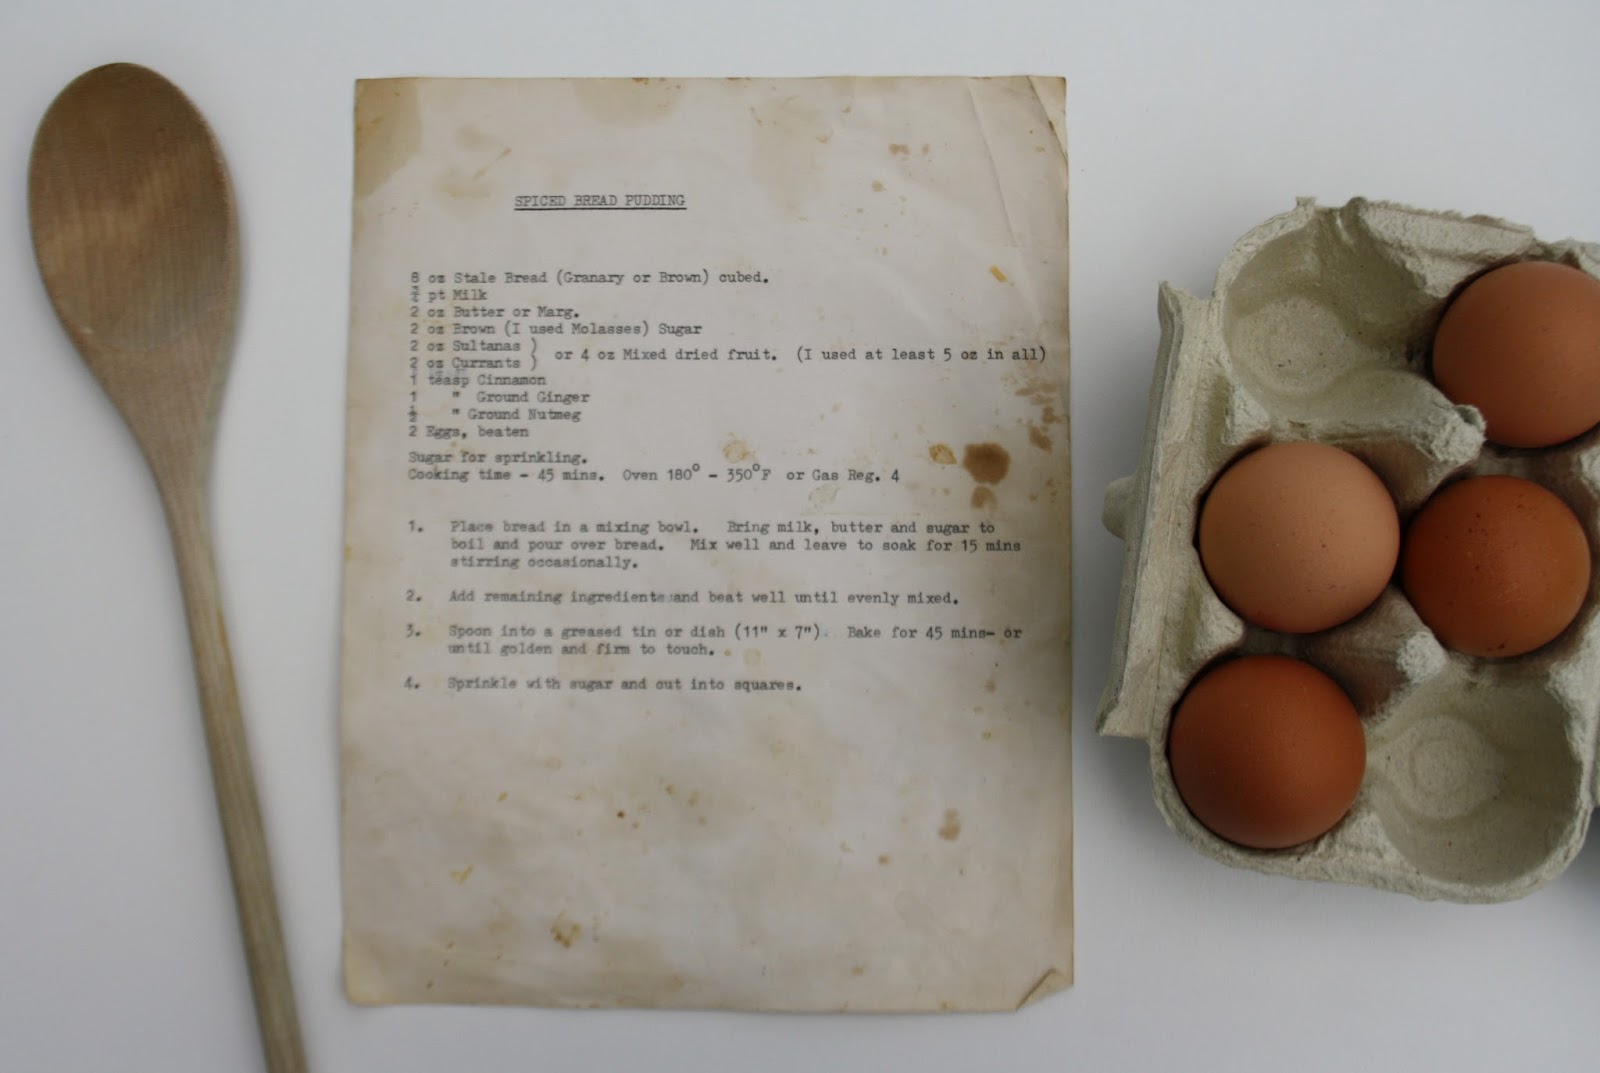 SPICED BREAD PUDDING
8 oz Stale Bread (Granary or Brown) cubed.
¾ pt Milk
2 oz Butter or Marg.
2 oz Brown (I used Molasses) Sugar
2 oz Sultanas )
2 oz Currants ) or 4 oz Mixed dried fruit. (I used at least 5 oz in all)
1 teasp Cinnamon
1 " Ground Ginger
½ " Ground Nutmeg
2 Eggs, beaten
Sugar for sprinkling.
Cooking time - 45 mins. Oven 180° - 350°F or Gas Reg. 4
1. Place bread in a mixing bowl. Bring milk, butter and sugar to
boil and pour over bread. Mix well and leave to soak for 15 mins
stirring occasionally.
2. Add remaining ingredients and beat well until evenly mixed.
3. Spoon into a greased tin or dish (11" x 7"). Bake for 45 mins- or
until golden and firm to touch.
4. Sprinkle with sugar and cut into squares.